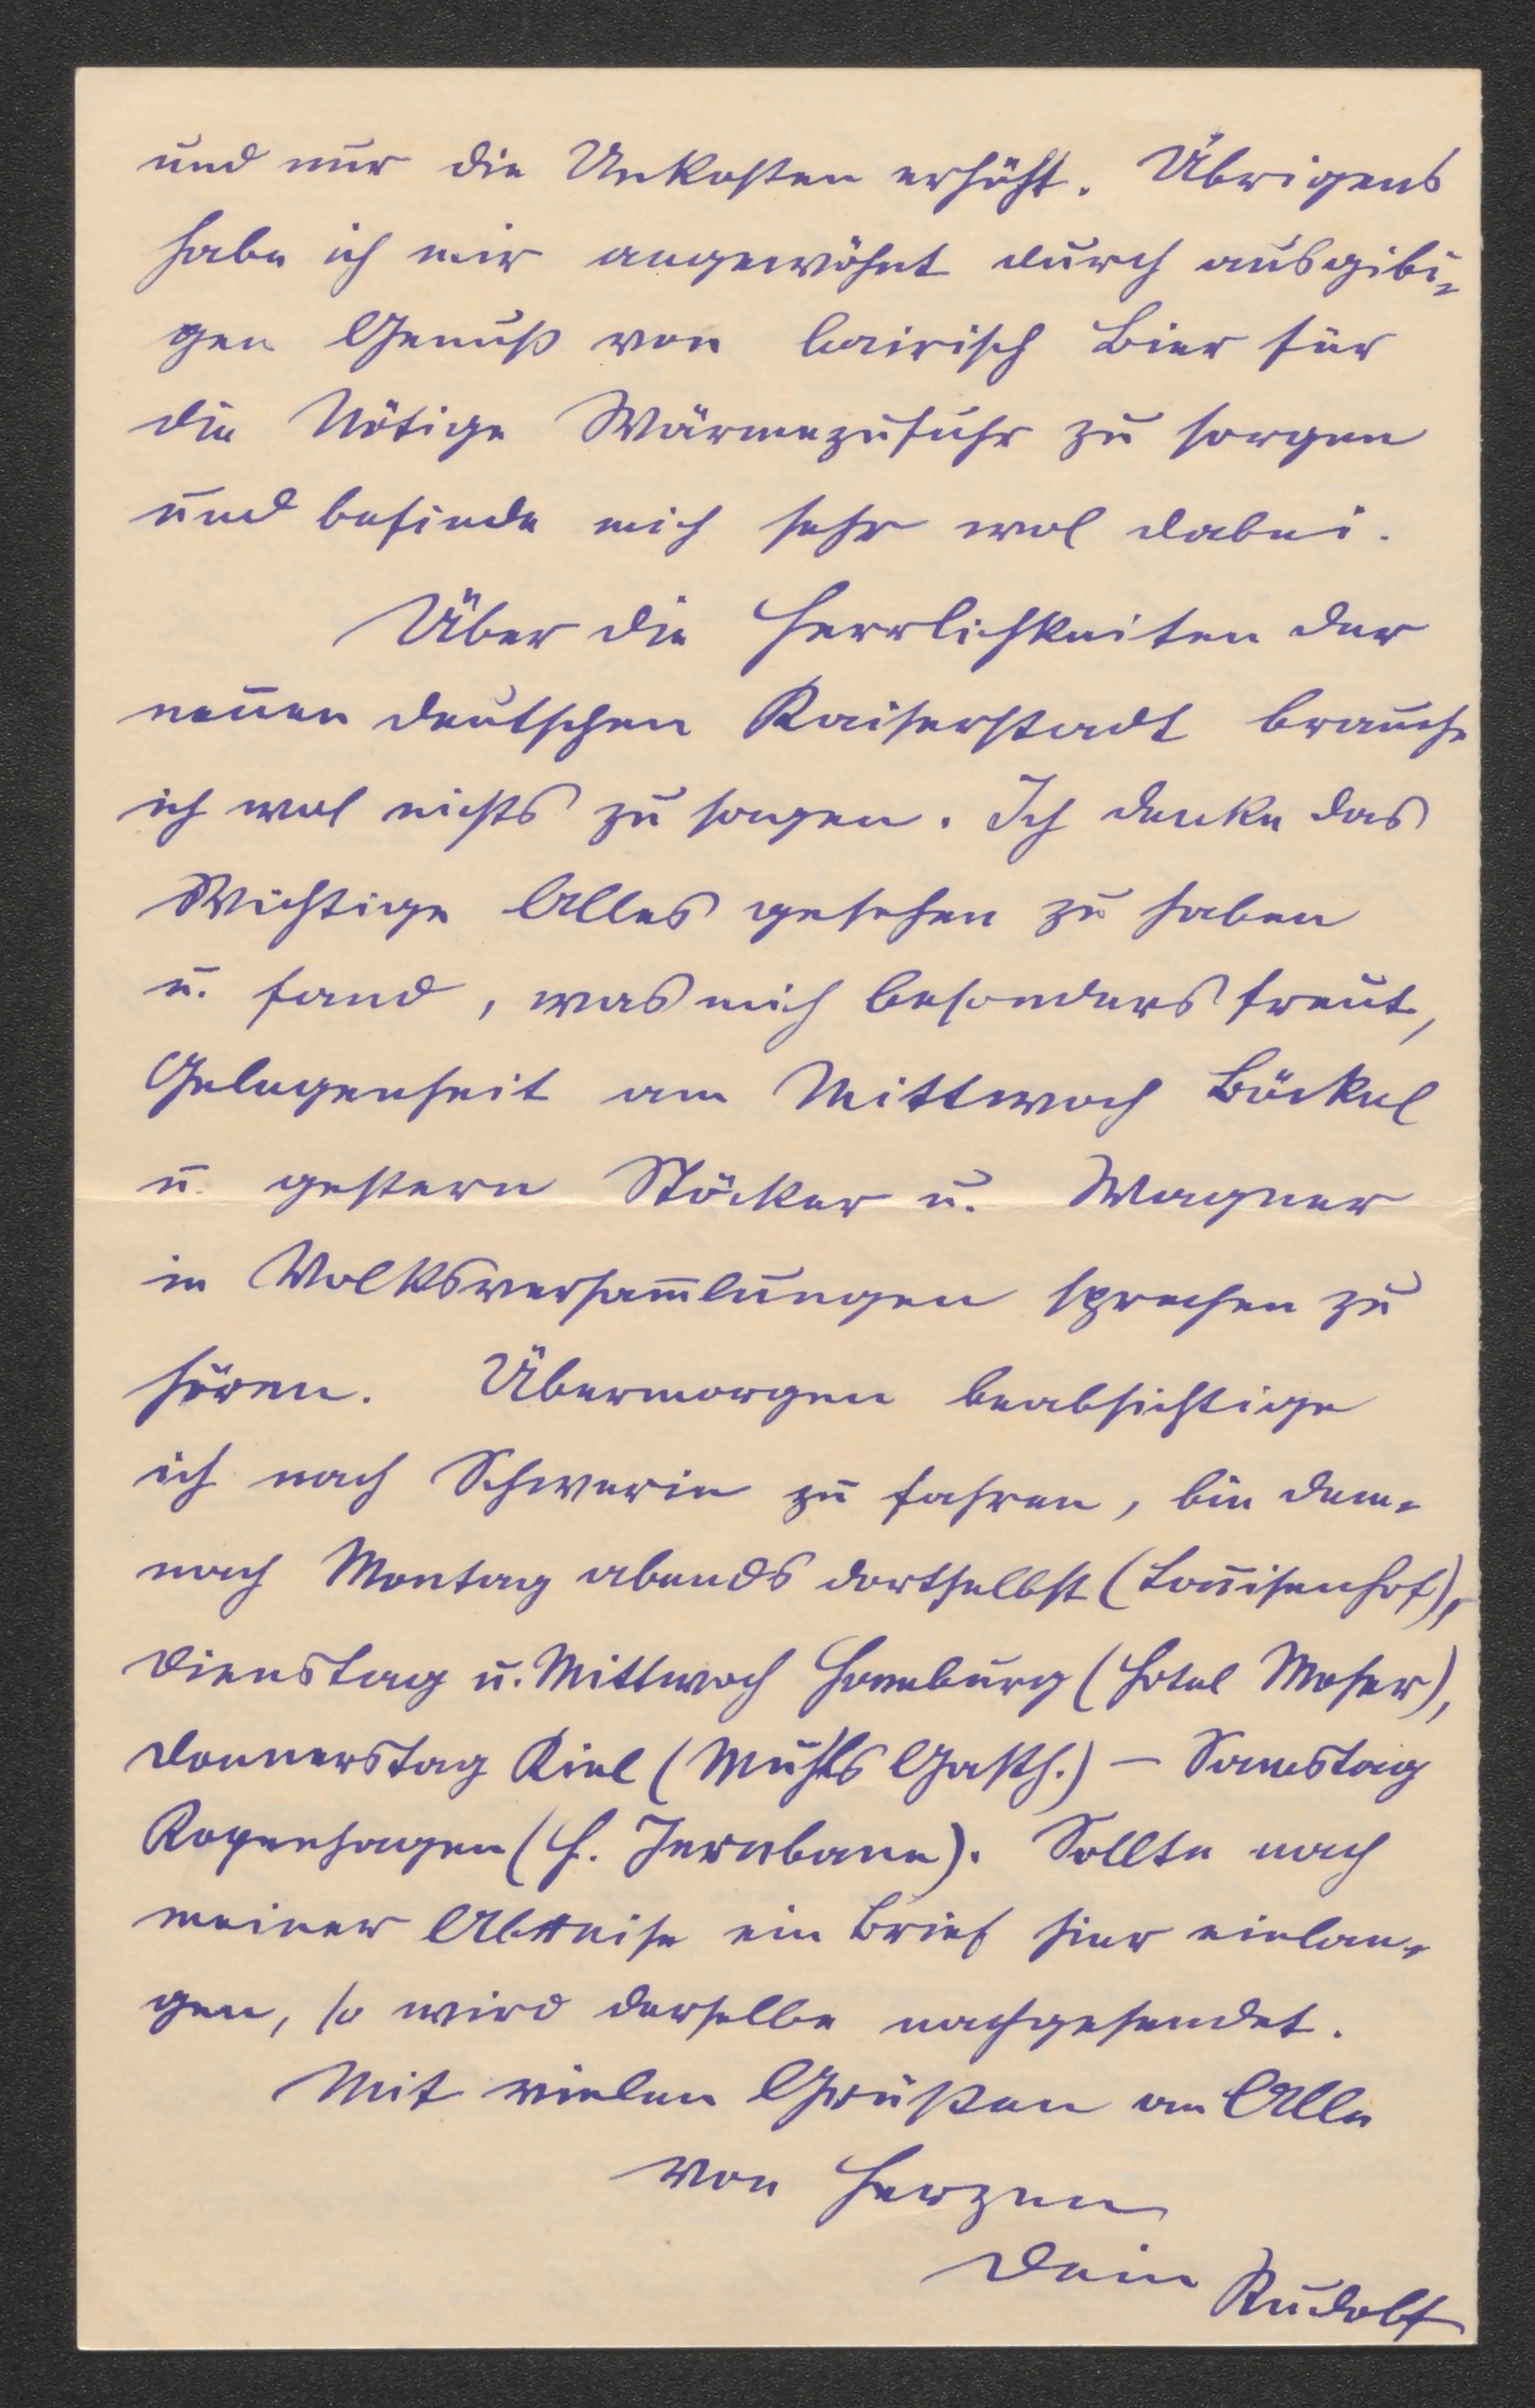 und nur die Unkosten erhöht. Übrigens
habe ich mir angewöhnt durch ausgibi-
gen Genuß von bairisch Bier für
die Nötige Wärmezufuhr zu sorgen
und befinde mich sehr wol dabei.
Über die Herrlichkeiten der
neuen deutschen Kaiserstadt brauche
ich wol nichts zu sagen. Ich denke das
Wichtige Alles gesehen zu haben
u. fand, was mich besonders freut,
Gelegenheit am Mittwoch Böckel
u. gestern Stöcker u. Wagner
in Volksversam̅lungen sprechen zu
hören. Übermorgen beabsichtige
ich nach Schwerin zu fahren, bin dem-
nach Montag abends dortselbst (Louisenhof),
Dienstag u. Mittwoch Hamburg (Hotel Moser),
Donnerstag Kiel (Muhls Gasth.) – Samstag
Kopenhagen (H. Jernbane). Sollte nach
meiner Abreise ein Brief hier einlan-
gen, so wird derselbe nachgesendet.
Mit vielen Grüßen an Alle
von Herzen
Dein Rudolf